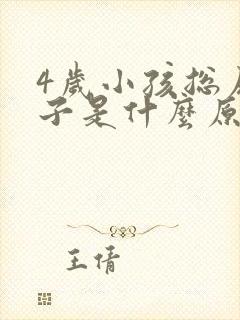 4歲小孩總
子是什麼原
王倩